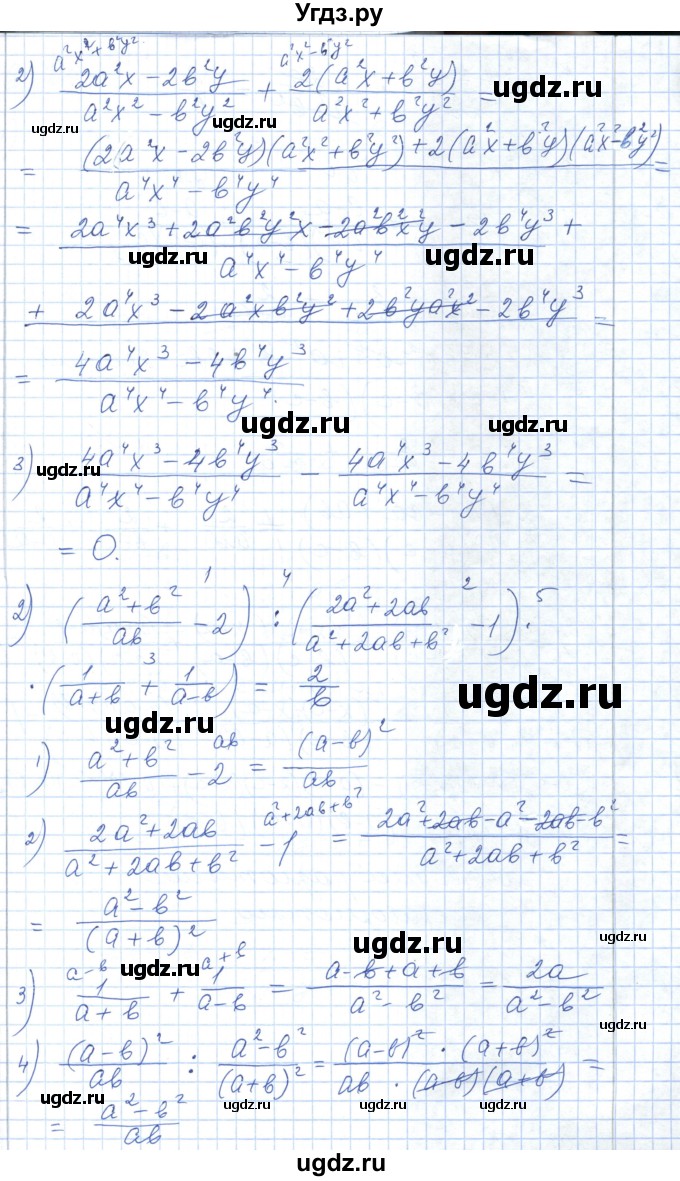 Угдз.ру
a²x²+b²y² a²x²-b²y²
2) (2a²x-2b²y)/(a²x²-b²y²) + 2(a²x+b²y)/(a²x²+b²y²) =
ugdz.ru ugdz.ru ugdz.ru
= ((2a²x-2b²y)(a²x²+b²y²)+2(a²x+b²y)(a²x²-b²y²))/(a⁴x⁴-b⁴y⁴) =
= (2a⁴x³+2a²b²y²x-2a²b²x²y-2b⁴y³+)/(a⁴x⁴-b⁴y⁴)
ugdz.ru ugdz.ru
+ 2a⁴x³-2a²xb²y²+2b²ya²x²-2b⁴y³ =
= (4a⁴x³-4b⁴y³)/(a⁴x⁴-b⁴y⁴).
ugdz.ru ugdz.ru
3) (4a⁴x³-4b⁴y³)/(a⁴x⁴-b⁴y⁴) - (4a⁴x³-4b⁴y³)/(a⁴x⁴-b⁴y⁴) =
ugdz.ru ugdz.ru
= 0.
1 4 2 5
2) ((a²+b²)/ab - 2) : ((2a²+2ab)/(a²+2ab+b²) - 1)·
3
·(1/(a+b) + 1/(a-b)) = 2/b
ugdz.ru
ugdz.ru
ab
1) (a²+b²)/ab - 2 = (a-b)²/ab
a²+2ab+b²
2) (2a²+2ab)/(a²+2ab+b²) - 1 = (2a²+2ab-a²-2ab-b²)/(a²+2ab+b²) =
= (a²-b²)/(a+b)²
ugdz.ru
a-b a+b
ugdz.ru ugdz.ru
3) 1/(a+b) + 1/(a-b) = (a-b+a+b)/(a²-b²) = 2a/(a²-b²)
4) (a-b)²/ab : (a²-b²)/(a+b)² = ((a-b)²·(a+b)²)/(ab·(a-b)(a+b)) =
ugdz.ru ugdz.ru ugdz.ru ugdz.ru
= (a²-b²)/ab
ugdz.ru